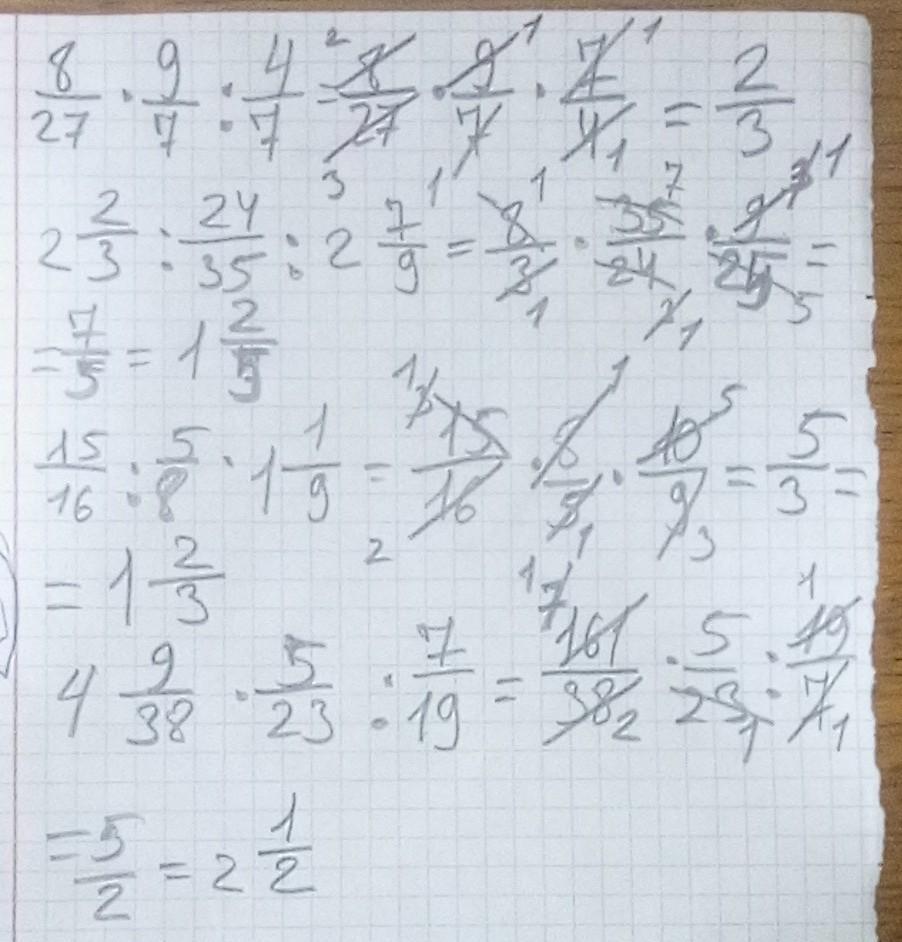 8/27 · 9/7 : 4/7 = 8/27 · 9/7 · 7/4 = 2/3
2 2/3 : 24/35 : 2 7/9 = 8/3 · 35/24 · 9/25 =
= 7/5 = 1 2/5
15/16 : 5/8 · 1 1/9 = 15/16 · 8/5 · 10/9 = 5/3 =
= 1 2/3
4 9/38 · 5/23 : 7/19 = 161/38 · 5/23 : 19/7
= 5/2 = 2 1/2